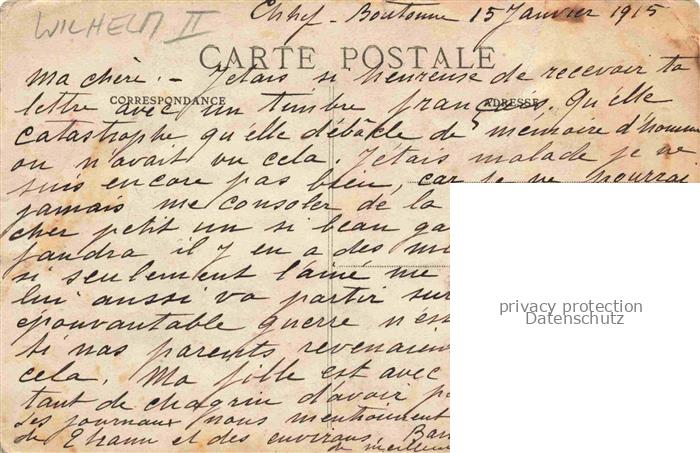 WILHELM II
Chef-Boutonne 15 Janvier 1915
CARTE POSTALE
Ma chère. - J'etais si heureuse de recevoir ta
CORRESPONDANCE
ADRESSE
lettre avec un timbre français. Qu'elle
catastrophe qu'elle débâcle de mémoire d'homme
on n'avait vu cela. J'étais malade je ne
suis encore pas bien, car je ne pourrai
jamais me consoler de la
cher petit un si beau ga
faudra il y en a des mi
si seulement l'ainé me
lui aussi va partir sur
épouvantable guerre n'est
Si nos parents revenaient
cela. Ma fille est avec
tant de chagrin d'avoir p
Les journaux nous mentionnent
de Thann et des environs. Bar
de meilleur
privacy protection
Datenschutz